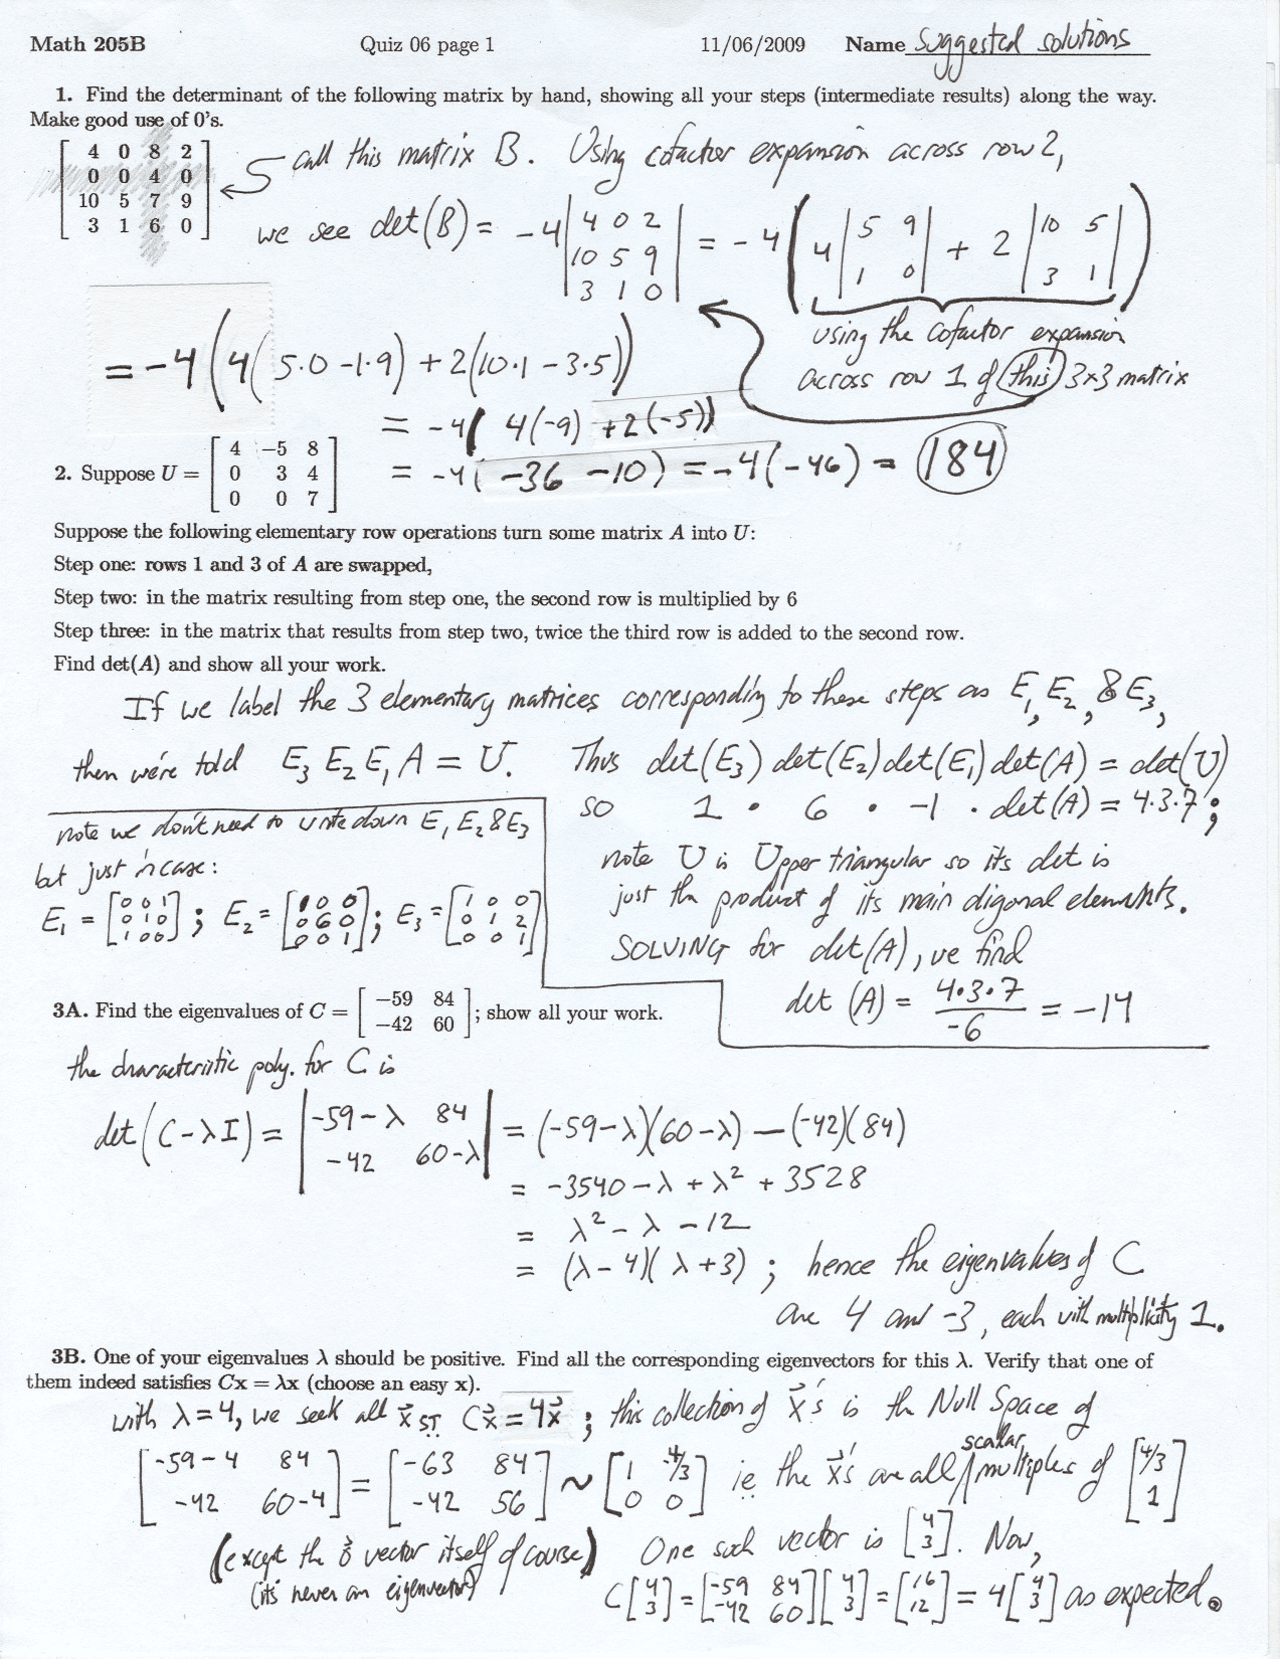 Math 205B Quiz 06 page 1 11/06/2009 Name Suggested solutions
1. Find the determinant of the following matrix by hand, showing all your steps (intermediate results) along the way.
Make good use of 0's.
[4 0 8 2
0 0 4 0
10 5 7 9
3 1 6 0]
call this matrix B. Using cofactor expansion across row 2,
we see det(B) = -4 |4 0 2
10 5 9
3 1 0| = -4 (4 |5 9
1 0| + 2 |10 5
3 1|)
using the cofactor expansion
across row 1 of this 3x3 matrix
= -4 (4(5·0 -1·9) + 2(10·1 - 3·5))
= -4( 4(-9) +2(-5))
= -4( -36 -10) = -4(-46) = 184
2. Suppose U = [4 -5 8
0 3 4
0 0 7]
Suppose the following elementary row operations turn some matrix A into U:
Step one: rows 1 and 3 of A are swapped,
Step two: in the matrix resulting from step one, the second row is multiplied by 6
Step three: in the matrix that results from step two, twice the third row is added to the second row.
Find det(A) and show all your work.
If we label the 3 elementary matrices corresponding to these steps as E₁, E₂, & E₃,
then we're told E₃ E₂ E₁ A = U. Thus det(E₃) det(E₂) det(E₁) det(A) = det(U)
so 1 · 6 · -1 · det(A) = 4·3·7;
note we don't need to write down E₁ E₂ & E₃
but just in case:
E₁ = [0 0 1
0 1 0
1 0 0]; E₂ = [1 0 0
0 6 0
0 0 1]; E₃ = [1 0 0
0 1 2
0 0 1]
note U is Upper triangular so its det is
just the product of its main digonal elements.
SOLVING for det(A), we find
det (A) = 4·3·7 / -6 = -14
3A. Find the eigenvalues of C = [-59 84
-42 60]; show all your work.
the characteristic poly. for C is
det(C-λI) = |-59-λ 84
-42 60-λ| = (-59-λ)(60-λ) - (-42)(84)
= -3540 - λ + λ² + 3528
= λ² - λ - 12
= (λ-4)(λ+3) ; hence the eigenvalues of C
are 4 and -3, each with multiplicity 1.
3B. One of your eigenvalues λ should be positive. Find all the corresponding eigenvectors for this λ. Verify that one of
them indeed satisfies Cx = λx (choose an easy x).
with λ=4, we seek all x⃗ ST. Cx⃗ = 4x⃗ ; this collection of x⃗'s is the Null Space of
[-59-4 84
-42 60-4] = [-63 84
-42 56] ~ [1 -4/3
0 0] ie the x⃗'s are all scalar multiples of [4/3
1]
(except the 0⃗ vector itself of course)
(it's never an eigenvector)
One such vector is [4
3]. Now,
C[4
3] = [-59 84
-42 60][4
3] = [16
12] = 4[4
3] as expected.